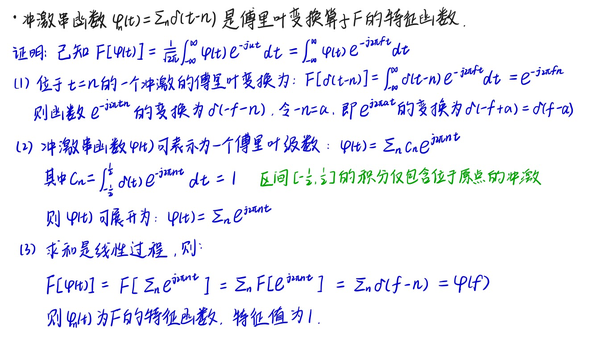 · 冲激串函数 φₙ(t)=Σₙδ(t-n) 是傅里叶变换算子F的特征函数.
证明: 已知 F[φ(t)] = 1/√2π ∫_{-∞}^{∞} φ(t) e^{-jut} dt = ∫_{-∞}^{∞} φ(t) e^{-j2πft} dt
(1) 位于 t=n 的一个冲激的傅里叶变换为: F[δ(t-n)] = ∫_{-∞}^{∞} δ(t-n) e^{-j2πft} dt = e^{-j2πfn}
则函数 e^{-j2πtn} 的变换为 δ(-f-n), 令 -n=a, 即 e^{j2πat} 的变换为 δ(-f+a) = δ(f-a)
(2) 冲激串函数 φ(t) 可表示为一个傅里叶级数: φ(t) = Σₙ cₙ e^{j2πnt}
其中 Cₙ = ∫_{-1/2}^{1/2} δ(t) e^{-j2πnt} dt = 1 区间 [-1/2, 1/2] 的积分仅包含位于原点的冲激
则 φ(t) 可展开为: φ(t) = Σₙ e^{j2πnt}
(3) 求和是线性过程, 则:
F[φ(t)] = F[Σₙ e^{j2πnt}] = Σₙ F[e^{j2πnt}] = Σₙ δ(f-n) = φ(f)
则 φₙ(t) 为F的特征函数, 特征值为1.